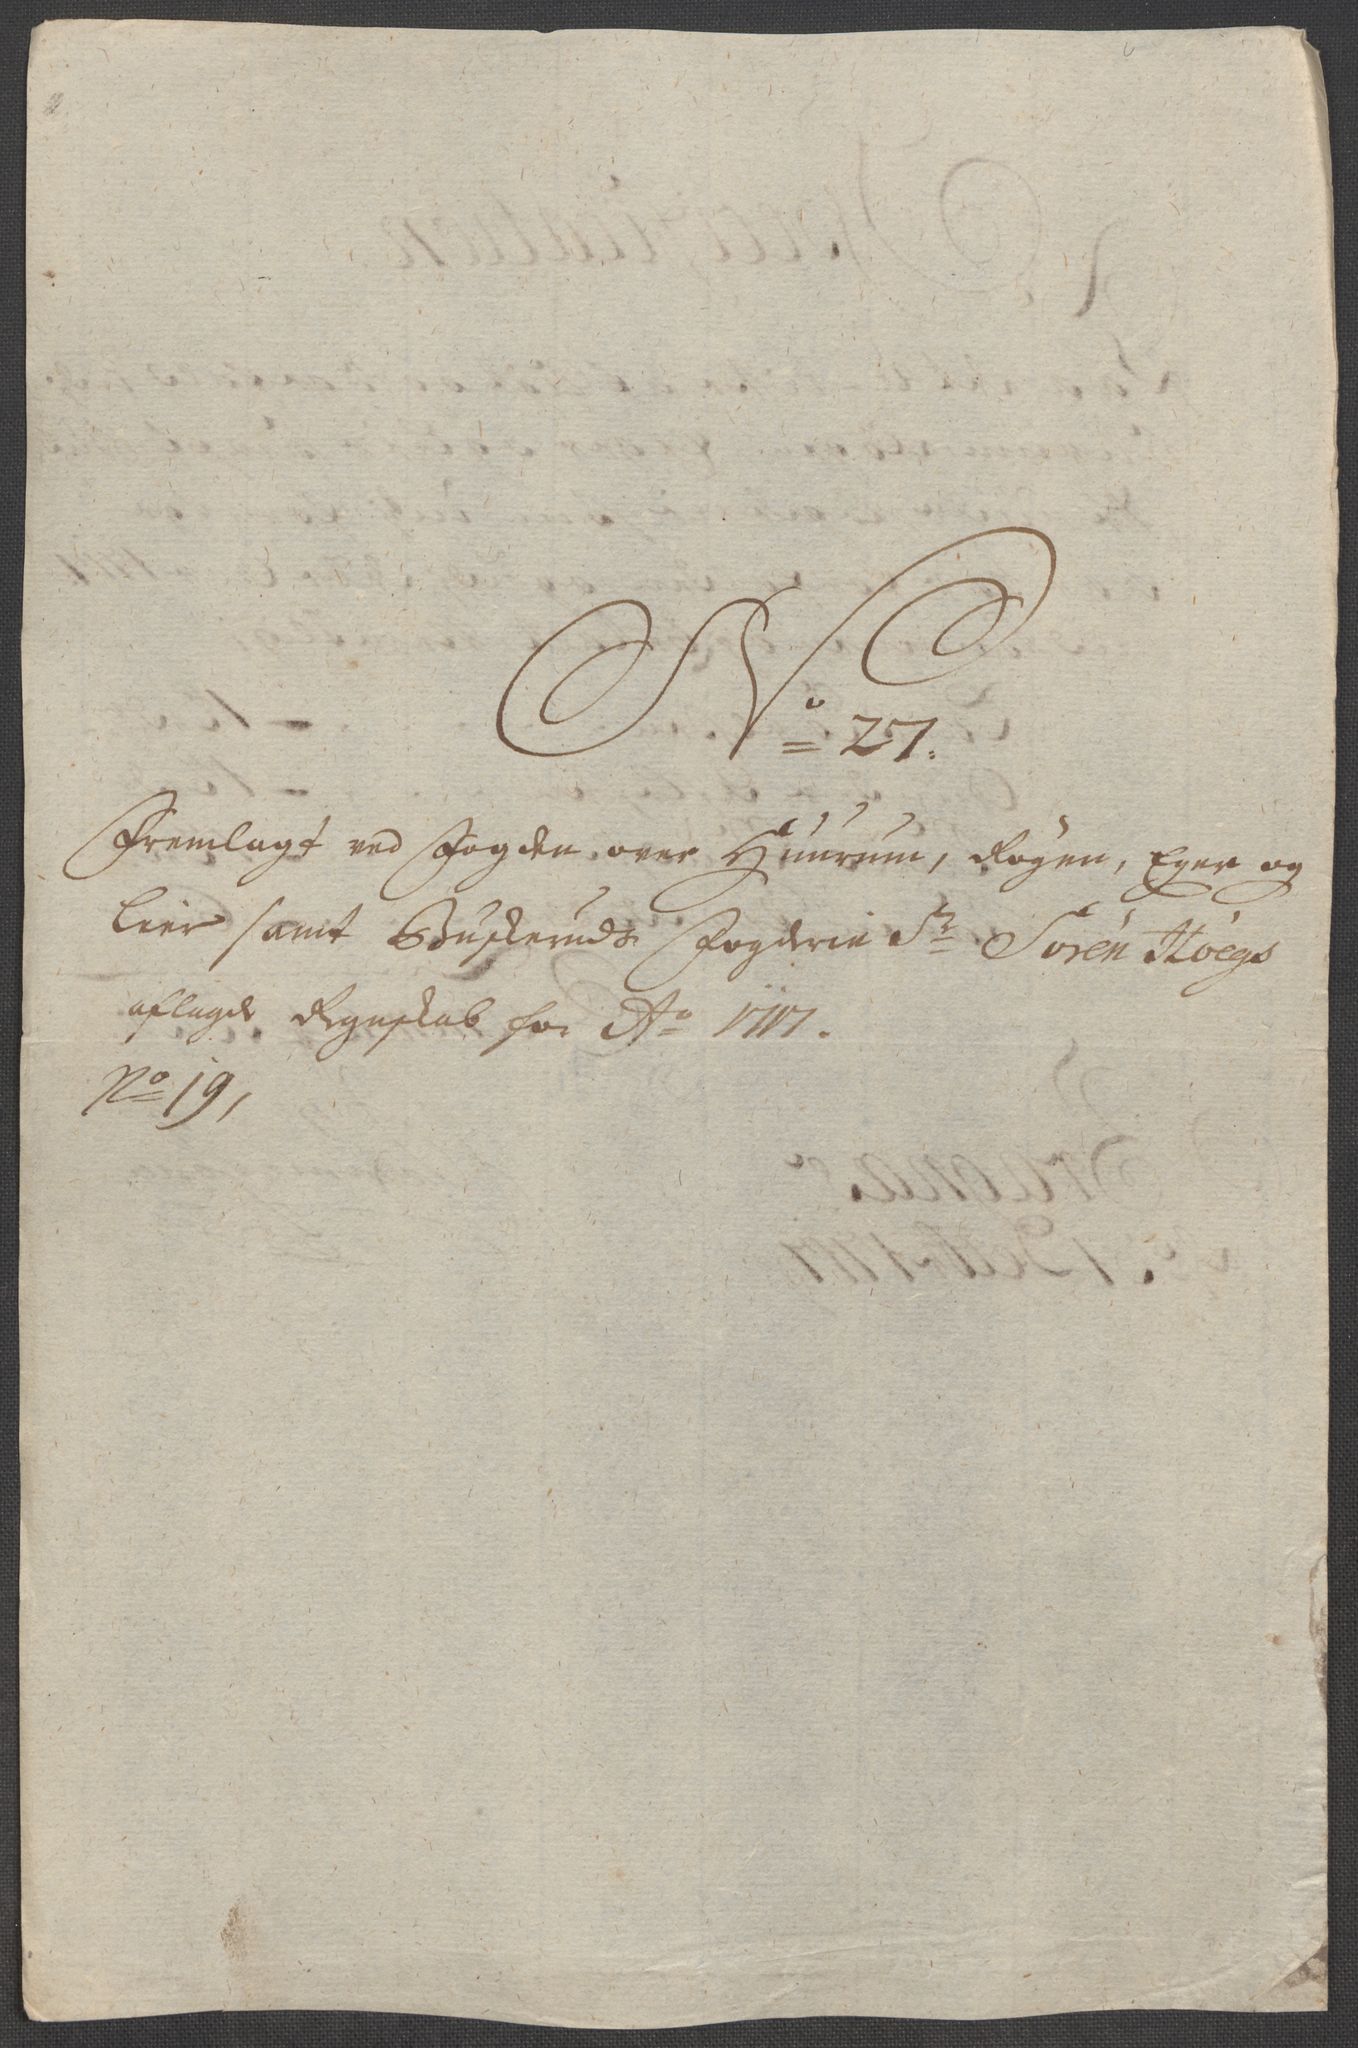 No 27.
Fremlagt ved Fogden over Huurum, Røgen, Eger og
Lier samt Buskeruds Fogderie Sr Søren Høegs
aflagde Regnskab for Ao 1717.
No 19,